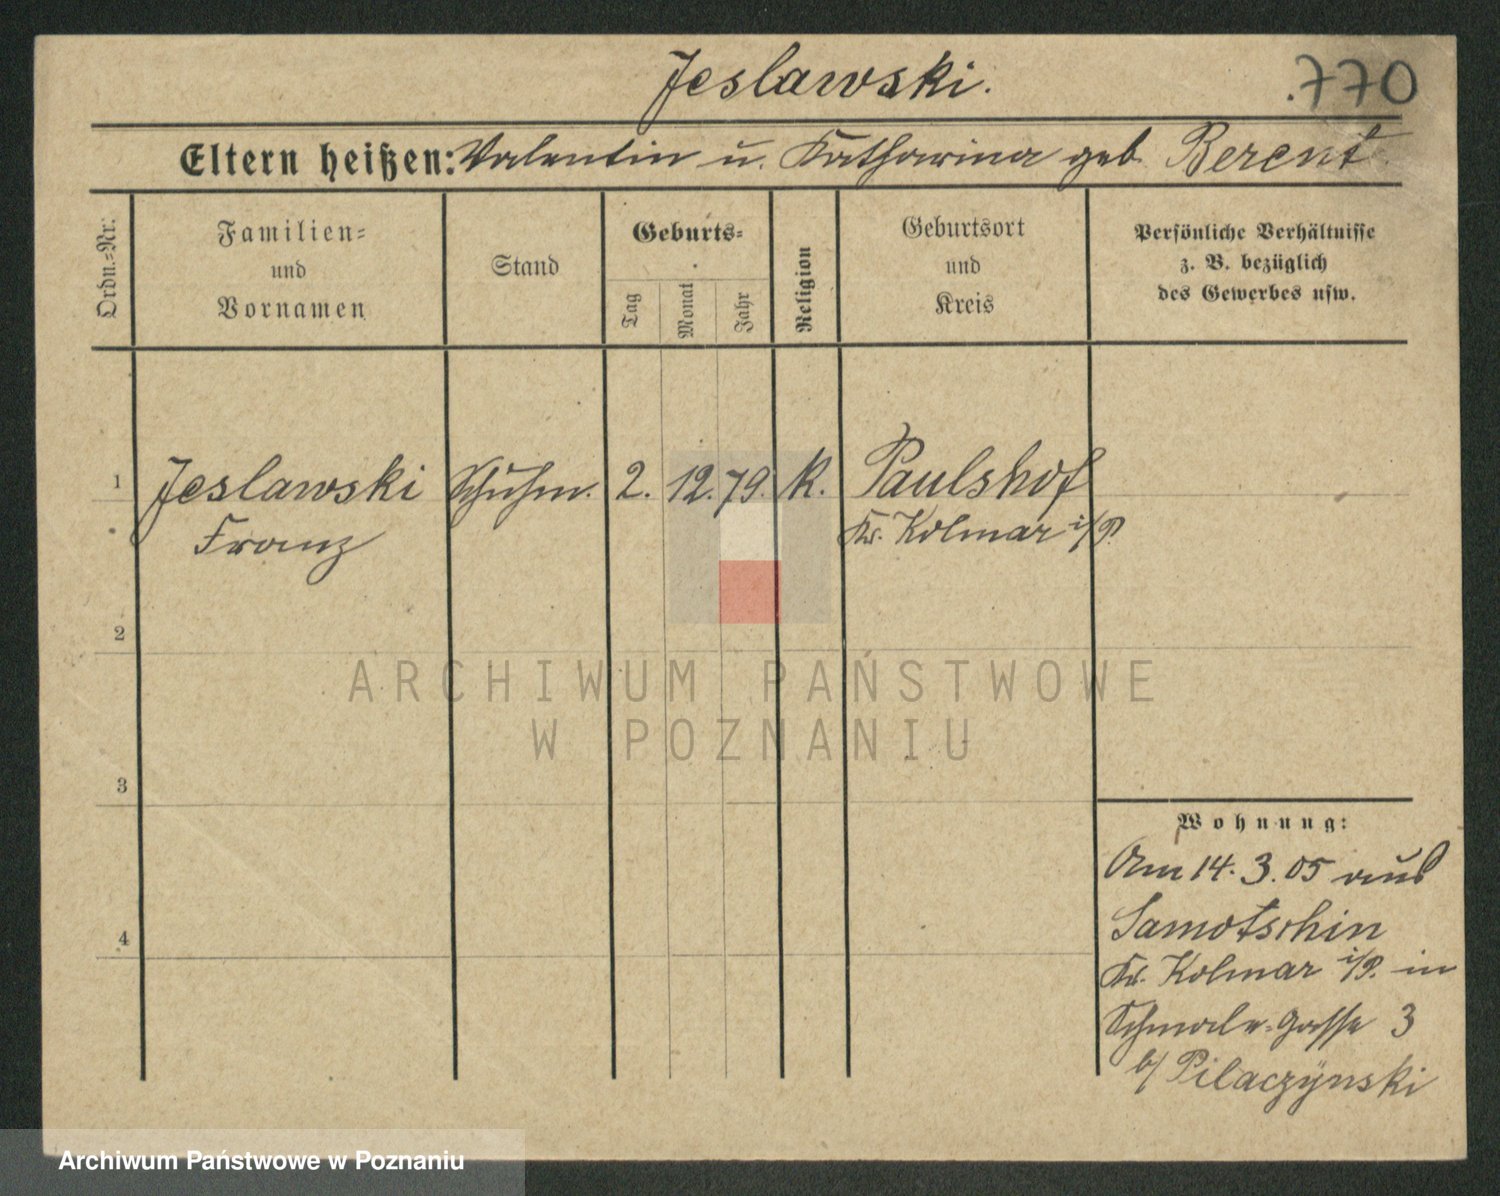 Jeslawski.
.770
Eltern heißen: Valentin u. Katharina geb. Berent
Ordn.-Nr.:
Familien-
und
Vornamen
Stand
Geburts-
Tag
Monat
Jahr
Religion
Geburtsort
und
Kreis
Persönliche Verhältnisse
z. B. bezüglich
des Gewerbes usw.
1 Jeslawski Schuhm. 2. 12. 79. K. Paulshof
Franz Kr. Kolmar i/P.
2
ARCHIWUM PAŃSTWOWE
W POZNANIU
3
Wohnung:
Am 14. 3. 05 aus
4 Samotschin
Kr. Kolmar i/P. in
Schmale-Gasse 3
b/ Pilaczynski
Archiwum Państwowe w Poznaniu